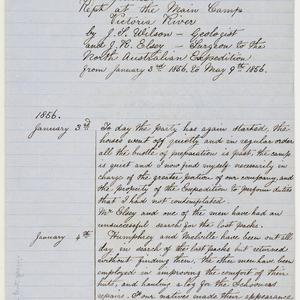 Kept at the Main Camp
Victoria River
by J. S. Wilson - Geologist
and J. R. Elsey - Surgeon to the
North Australian Expedition
from January 3rd 1856. to May 9th 1856.
1856.
January 3rd To day the party has again started, the
horses went off quietly and in regular order
all the bustle of preparation is past, the camp
is quiet and I now find myself necessarily in
charge of the greater portion of our company, and
the property of the Expedition to perform duties
that I had not contemplated.
Mr Elsey and one of the men have had an
unsuccessful search for the lost packs.
January 4th Humphrey and Melville have been out all
day in search of the lost packs but returned
without finding them, the others have been
employed in improving the comfort of their
huts, and hauling a log for the Schooners
repairs. Four natives made their appearance